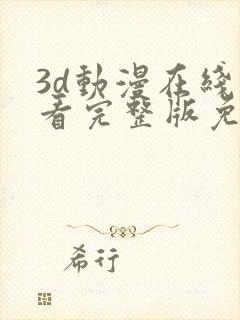 3d動漫在綫
看完整版免
希行